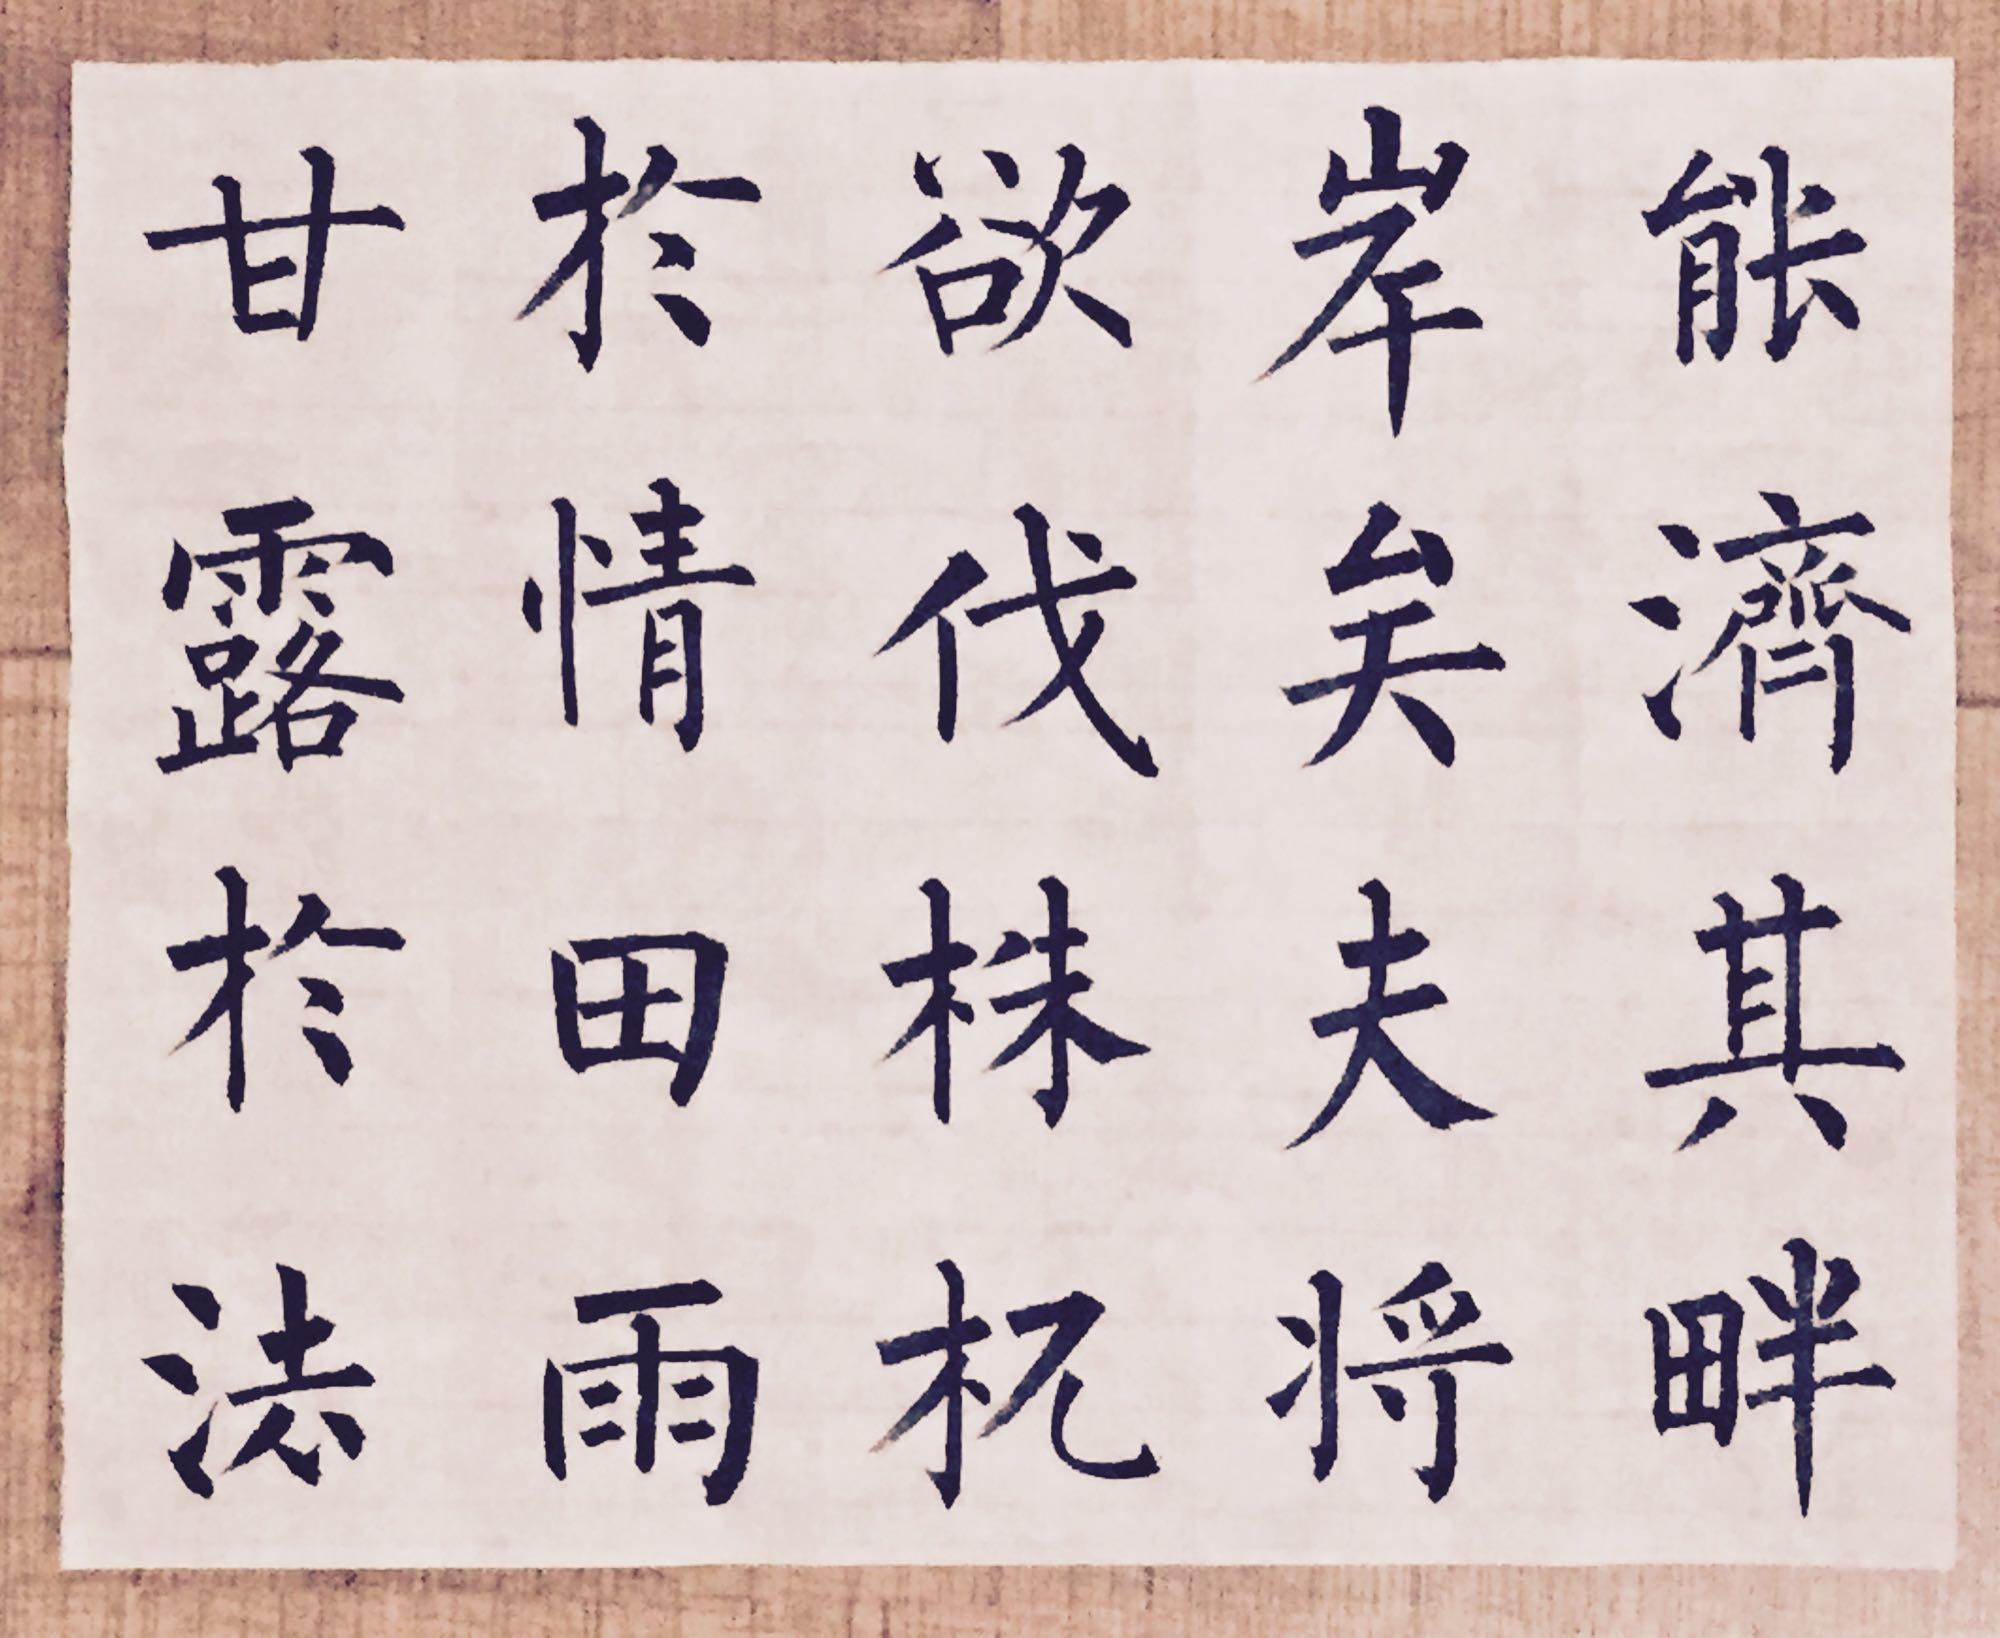 能濟其畔
岸矣夫將
欲伐株杌
於情田雨
甘露於法